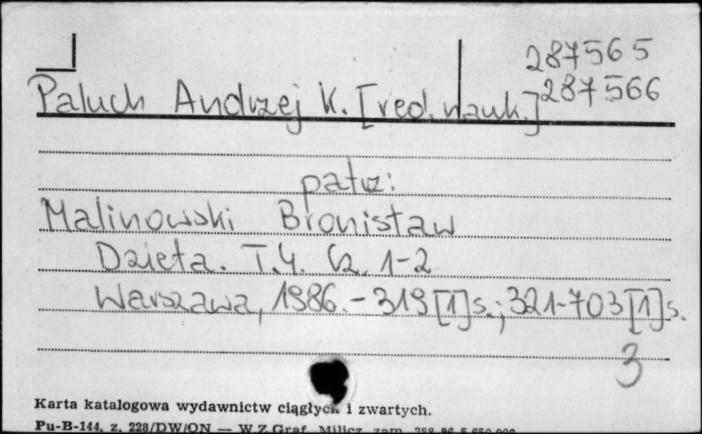 287565
Paluch Andrzej K. [red. nauk.] 287566
patrz:
Malinowski Bronisław
Dzieła. T.4. Cz. 1-2
Warszawa, 1986. - 319 [1] s.; 321-703 [1] s.
3
Karta katalogowa wydawnictw ciągłych i zwartych.
Pu-B-144, z. 228/DW/ON — W.Z.Graf. Milicz zam.